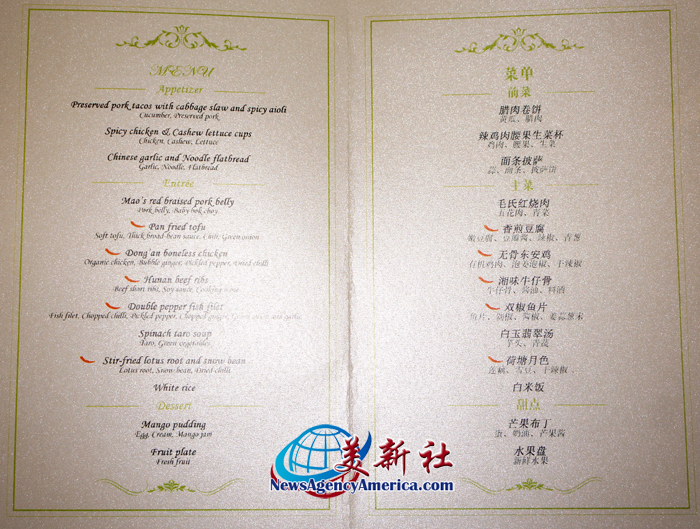 MENU
Appetizer
Preserved pork tacos with cabbage slaw and spicy aioli
Cucumber, Preserved pork
Spicy chicken & Cashew lettuce cups
Chicken, Cashew, Lettuce
Chinese garlic and Noodle flatbread
Garlic, Noodle, Flatbread
Entrée
Mao's red braised pork belly
Pork belly, Baby bok choy
Pan fried tofu
Soft tofu, Thick broad-bean sauce, Chili, Green onion
Dong'an boneless chicken
Organic chicken, Bubble ginger, Pickled pepper, Dried chilli
Hunan beef ribs
Beef short ribs, Soy sauce, Cooking wine
Double pepper fish filet
Fish filet, Chopped chilli, Pickled pepper, Chopped ginger, Green onion and garlic
Spinach taro soup
Taro, Green vegetables
Stir-fried lotus root and snow bean
Lotus root, Snow bean, Dried chilli
White rice
Dessert
Mango pudding
Egg, Cream, Mango jam
Fruit plate
Fresh fruit
菜单
前菜
腊肉卷饼
黄瓜、腊肉
辣鸡肉腰果生菜杯
鸡肉、腰果、生菜
面条披萨
蒜、面条、披萨饼
主菜
毛氏红烧肉
五花肉、青菜
香煎豆腐
嫩豆腐、豆瓣酱、辣椒、青葱
无骨东安鸡
有机鸡肉、泡姜泡椒、干辣椒
湘味牛仔骨
牛仔骨、酱油、料酒
双椒鱼片
鱼片、剁椒、酱椒、姜蒜葱末
白玉翡翠汤
芋头、青蔬
荷塘月色
莲藕、雪豆、干辣椒
白米饭
甜点
芒果布丁
蛋、奶油、芒果酱
水果盘
新鲜水果
美新社
NewsAgencyAmerica.com